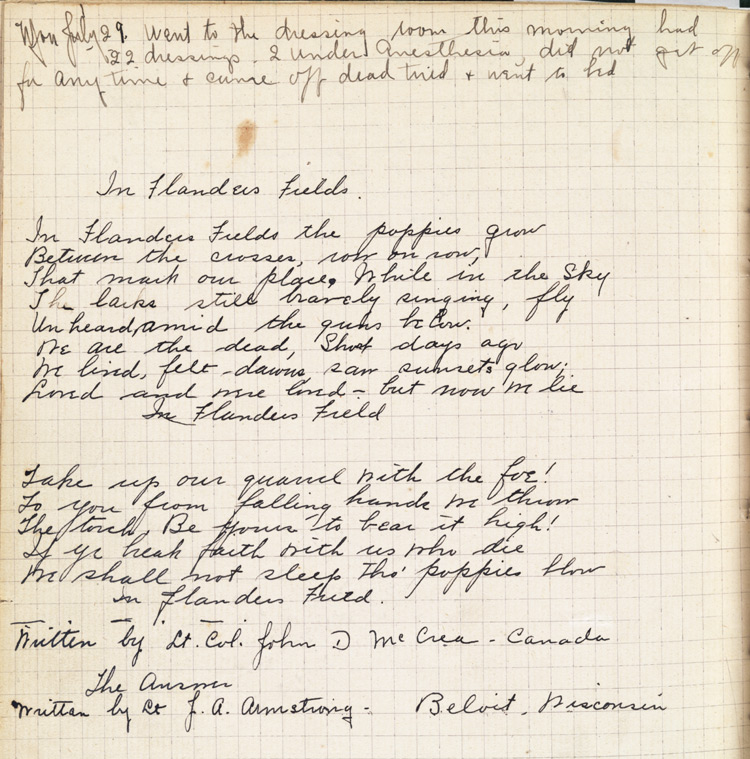 Mon July 29. Went to the dressing room this morning had
22 dressings. 2 under Anesthesia did not get off
for any time & came off dead tired & went to bed
In Flanders Fields.
In Flanders Fields the poppies grow
Between the crosses, row on row,
That mark our place, While in the Sky
The larks still bravely singing, fly
Unheard, amid the guns below.
We are the dead, Short days ago
We lived, felt dawns saw sunsets glow;
Loved and were loved - but now we lie
In Flanders Field
Take up our quarrel with the foe!
To you from falling hands we throw
The torch, Be yours to bear it high!
If ye break faith with us who die
We shall not sleep tho' poppies blow
in Flanders Field.
Written by Lt. Col. John D McCrea - Canada
The Answer
Written by Lt J. A. Armstrong - Beloit, Wisconsin